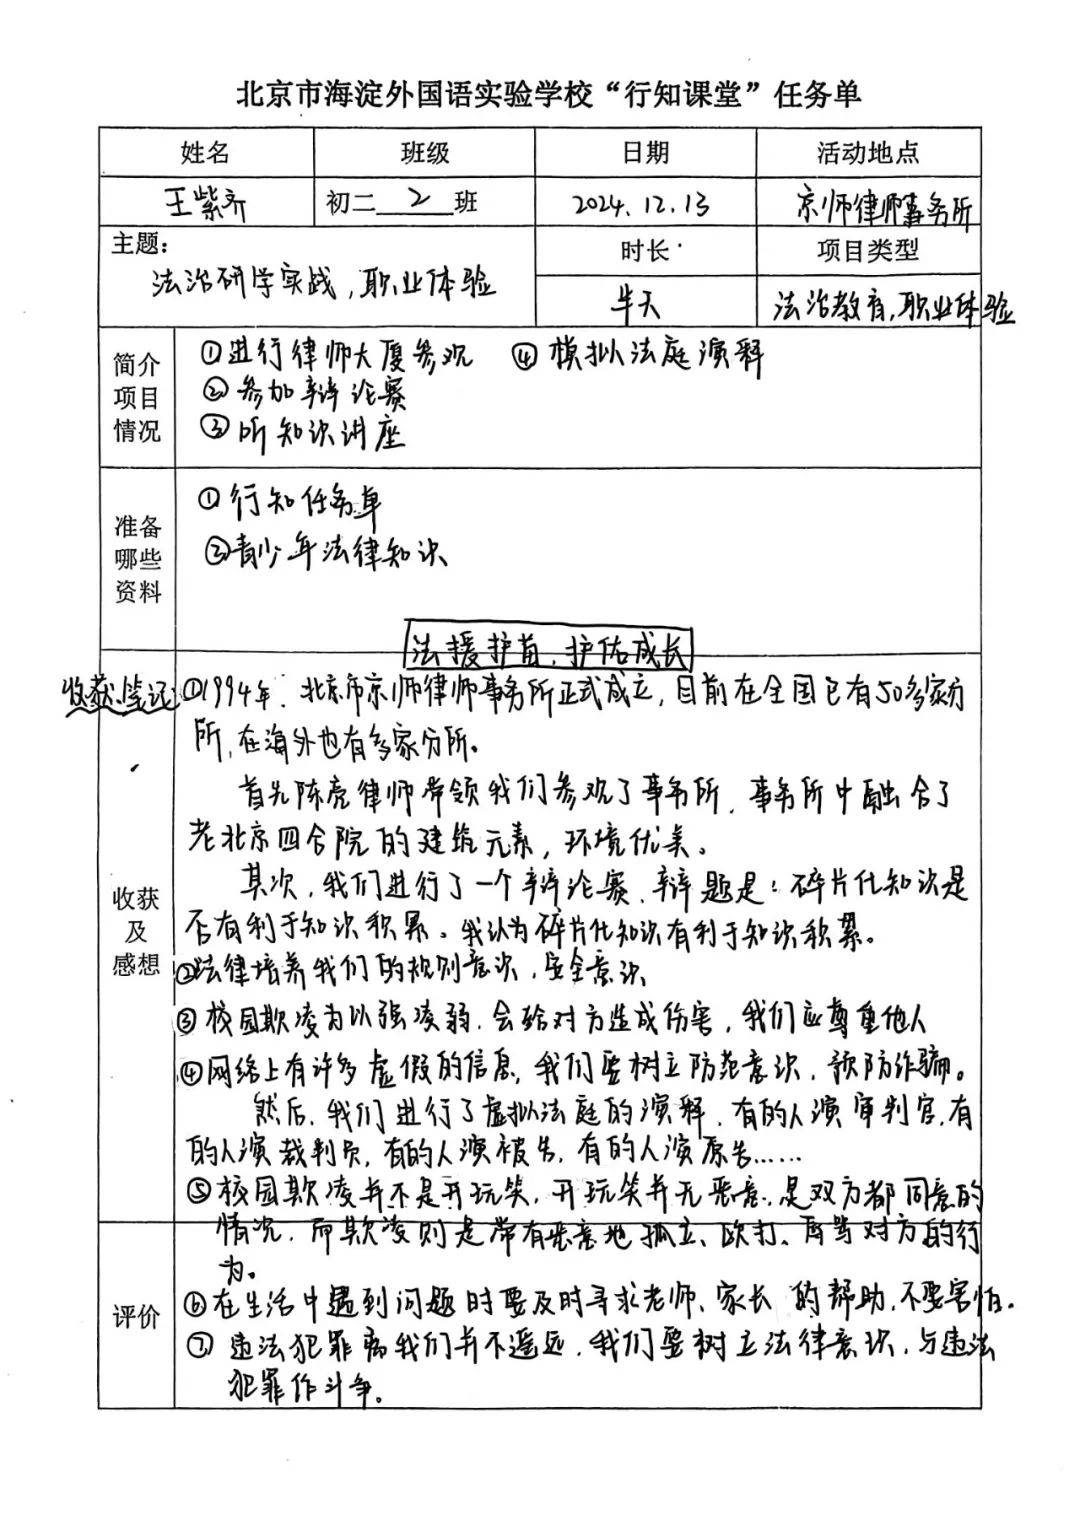 北京市海淀外国语实验学校“行知课堂”任务单
姓名 班级 日期 活动地点
王紫齐 初二 2 班 2024.12.13 京师律师事务所
主题： 时长 项目类型
法治研学实战，职业体验 半天 法治教育，职业体验
简介项目情况
①进行律师大厦参观 ④模拟法庭演释
②参加辩论赛
③听知识讲座
准备哪些资料
①行知任务单
②青少年法律知识
法援护苗，护佑成长
收获及感想
收获笔记：①1994年，北京市京师律师事务所正式成立，目前在全国已有50多家分
所，在海外也有多家分所。
首先陈亮律师带领我们参观了事务所，事务所中融合了
老北京四合院的建筑元素，环境优美。
其次，我们进行了一个辩论赛，辩题是：碎片化知识是
否有利于知识积累。我认为碎片化知识有利于知识积累。
②法律培养我们的规则意识，安全意识
③校园欺凌为以强凌弱，会给对方造成伤害，我们应尊重他人
④网络上有许多虚假的信息，我们要树立防范意识，预防诈骗。
然后，我们进行了虚拟法庭的演释，有的人演审判官，有
的人演裁判员，有的人演被告，有的人演原告……
⑤校园欺凌并不是开玩笑，开玩笑并无恶意，是双方都同意的
情况，而欺凌则是带有恶意地孤立、欧打、辱骂对方的行
为。
评价
⑥在生活中遇到问题时要及时寻求老师、家长的帮助，不要害怕。
⑦违法犯罪离我们并不遥远，我们要树立法律意识，与违法
犯罪作斗争。